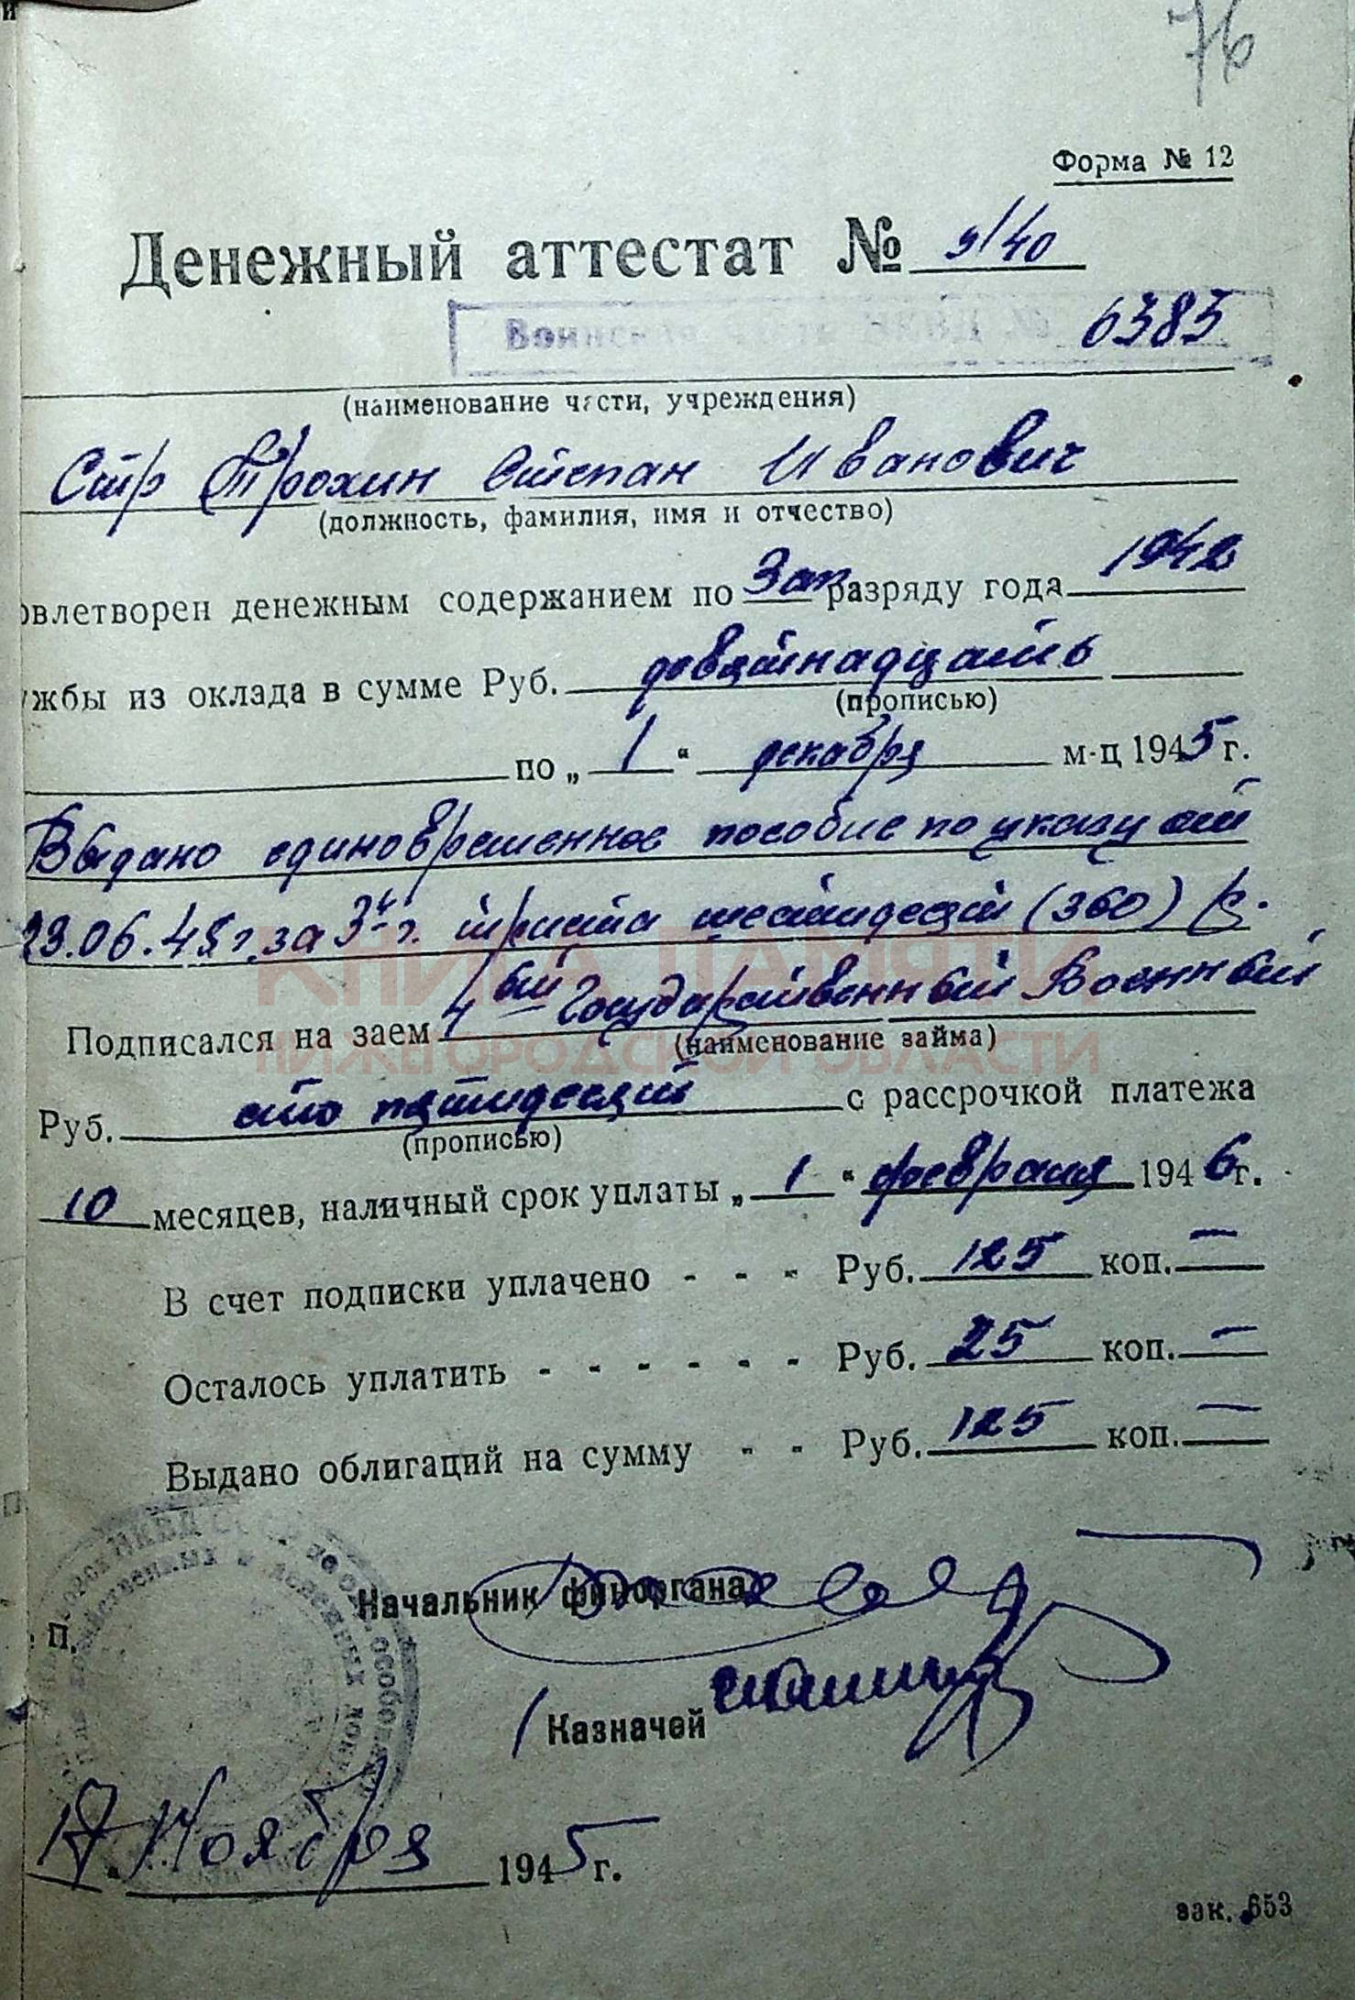 76
Форма № 12
Денежный аттестат № э/40
Воинская часть НКВД № 6385
(наименование части, учреждения)
Стр Трохин Степан Иванович
(должность, фамилия, имя и отчество)
овлетворен денежным содержанием по Зап разряду года 1942
жбы из оклада в сумме Руб. девятнадцать
(прописью)
по „ 1 “ декабря м-ц 1945 г.
Выдано единовременное пособие по указу от
23.06.45 г. за 3 г. триста шестьдесят (360) р.
КНИГА ПАМЯТИ
Подписался на заем 4ый Государственный Военный
НИЖЕГОРОДСКОЙ ОБЛАСТИ
(наименование займа)
Руб. сто пятьдесят с рассрочкой платежа
(прописью)
10 месяцев, наличный срок уплаты „ 1 “ февраля 1946 г.
В счет подписки уплачено - - - Руб. 125 коп. —
Осталось уплатить - - - - - - Руб. 25 коп. —
Выдано облигаций на сумму - - Руб. 125 коп. —
Начальник финоргана
П.
Казначей
17 Ноября 1945 г.
зак. 653